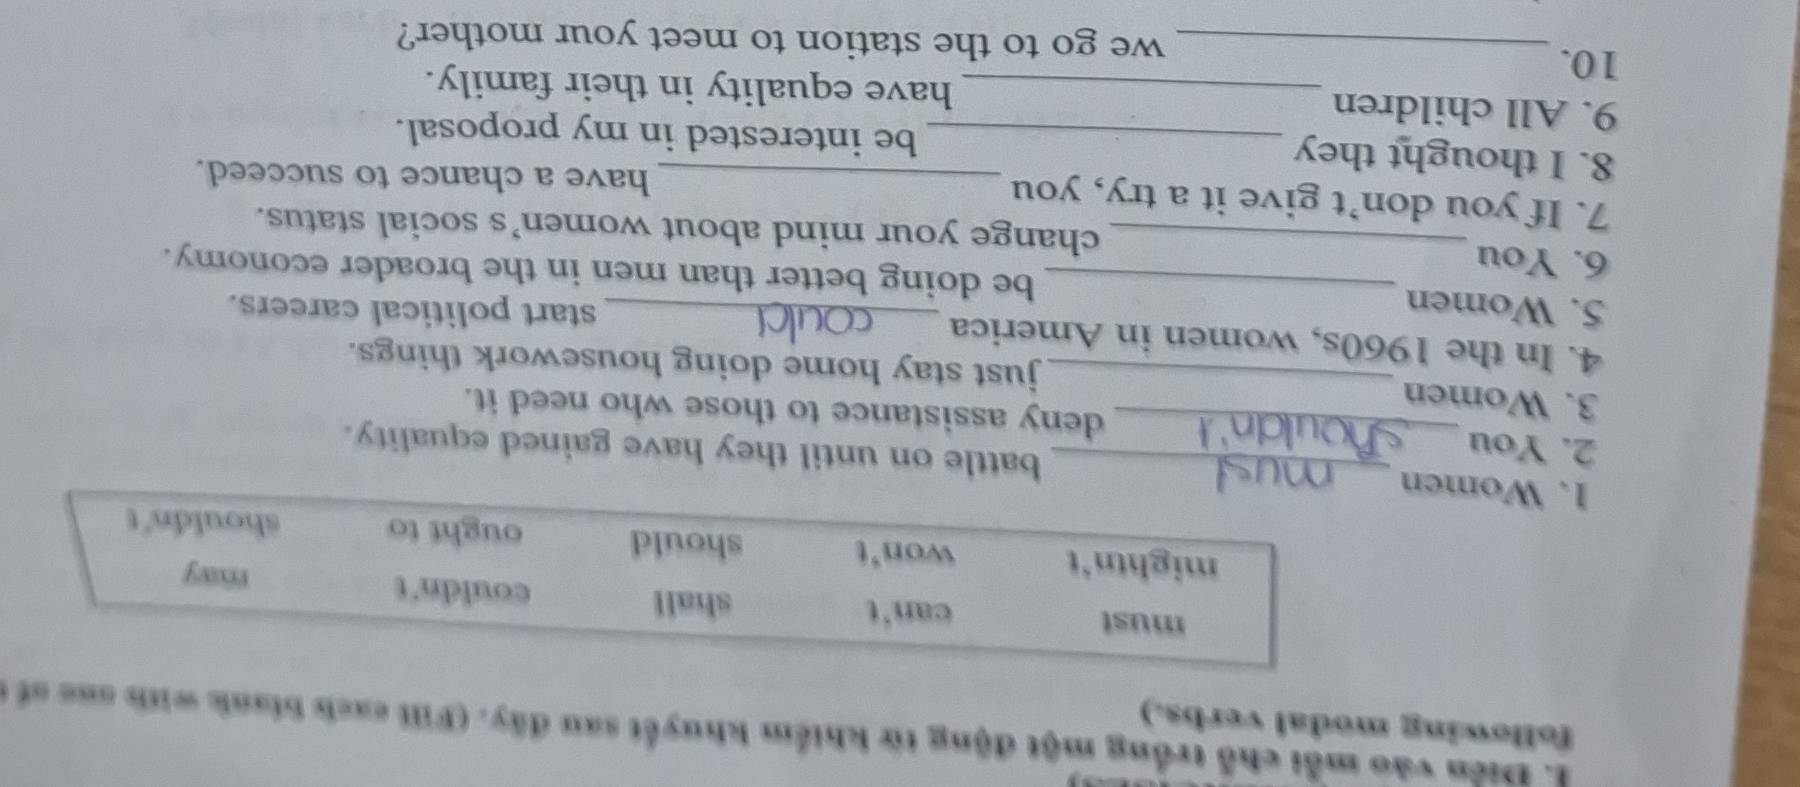 I. Điền vào mỗi chỗ trống một động từ khiếm khuyết sau đây. (Fill each blank with one of
following modal verbs.)
must can't shall couldn't may
mightn't won't should ought to shouldn't
1. Women must battle on until they have gained equality.
2. You shouldn't deny assistance to those who need it.
3. Women ____ just stay home doing housework things.
4. In the 1960s, women in America could start political careers.
5. Women ____ be doing better than men in the broader economy.
6. You ____ change your mind about women's social status.
7. If you don't give it a try, you ____ have a chance to succeed.
8. I thought they ____ be interested in my proposal.
9. All children ____ have equality in their family.
10. ____ we go to the station to meet your mother?